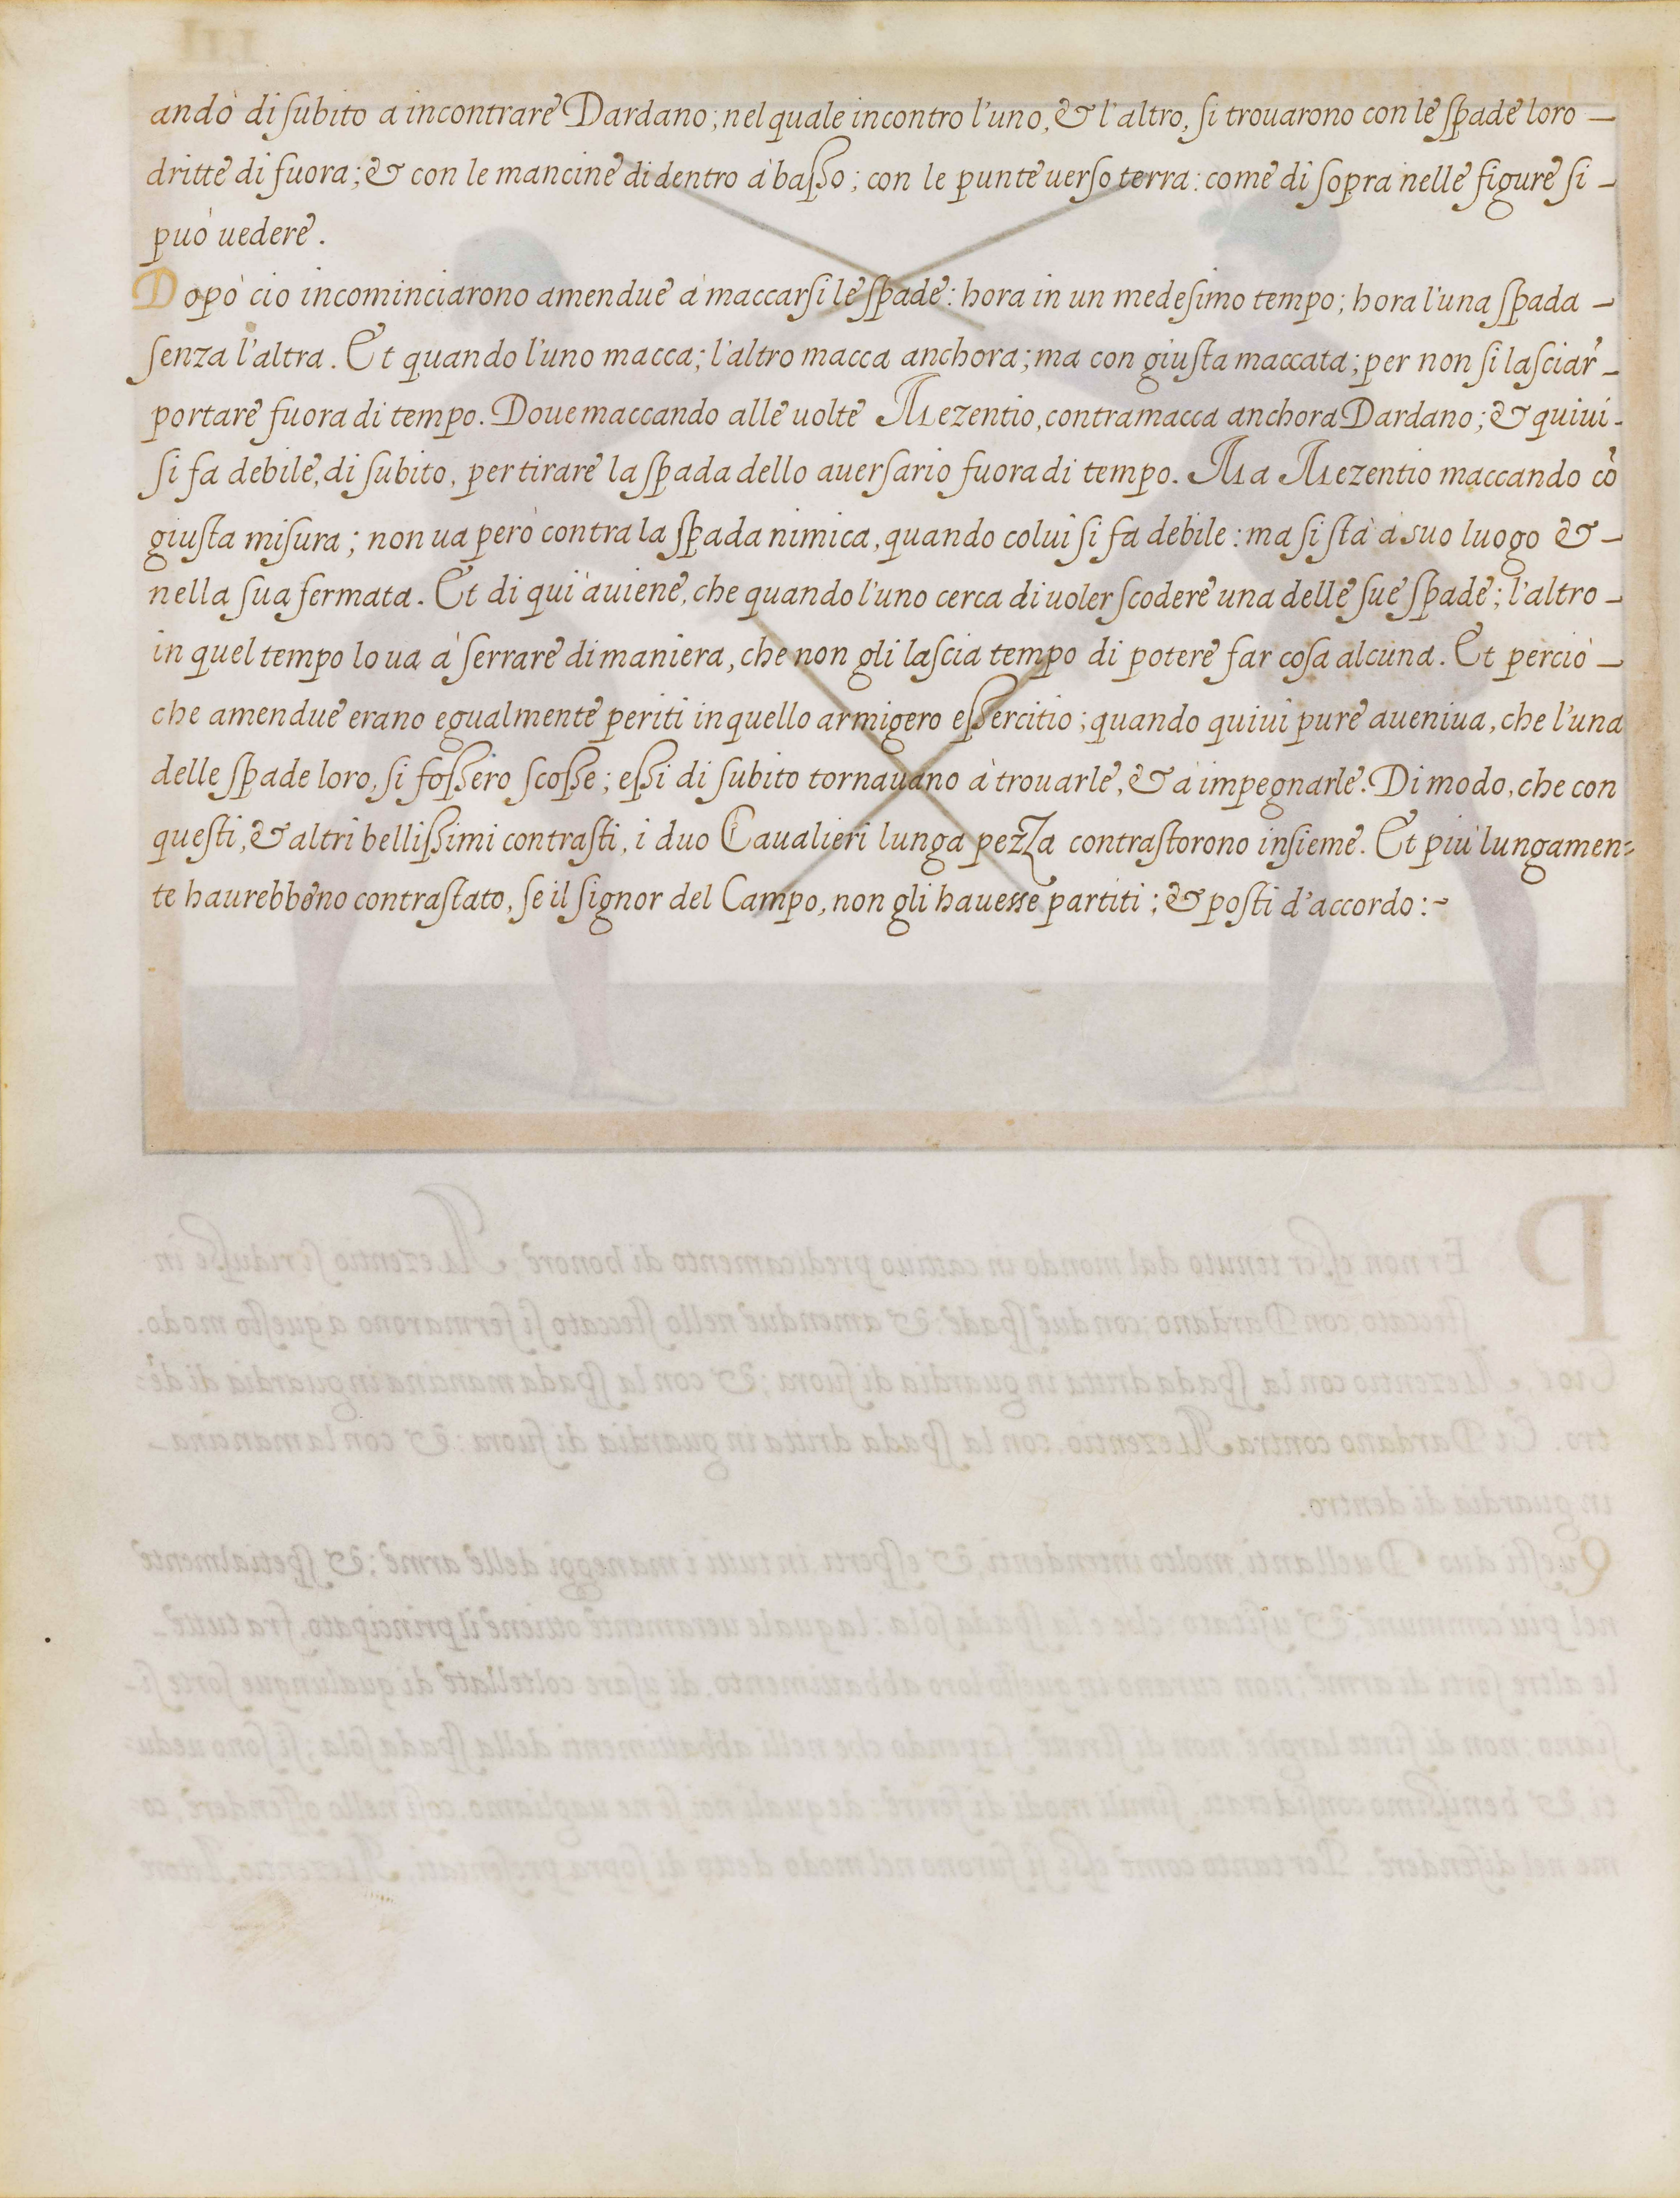 andò di ſubito a incontrare Dardano; nel quale incontro l'uno, & l'altro, ſi trouarono con le ſpade loro —
dritte di fuora; & con le mancine di dentro à baſso; con le punte uerſo terra: come di ſopra nelle figure ſi —
può uedere.
Dopò cio incominciarono amendue à maccarſi le ſpade: hora in un medeſimo tempo; hora l'una ſpada —
ſenza l'altra. Et quando l'uno macca; l'altro macca anchora; ma con giuſta maccata; per non ſi laſciar —
portare fuora di tempo. Doue maccando alle uolte Mezentio, contramacca anchora Dardano; & quiui -
ſi fa debile, di ſubito, per tirare la ſpada dello auerſario fuora di tempo. Ma Mezentio maccando cõ
giuſta miſura; non ua però contra la ſpada nimica, quando colui ſi fa debile: ma ſi ſtà à suo luogo & —
nella ſua fermata. Et di qui auiene, che quando l'uno cerca di uoler ſcodere una delle ſue ſpade; l'altro —
in quel tempo lo ua à ſerrare di maniera, che non gli laſcia tempo di potere far coſa alcuna. Et perciò —
che amendue erano egualmente periti in quello armigero eſsercitio; quando quiui pure aueniua, che l'una
delle ſpade loro, ſi foſsero ſcoſse; eſsi di ſubito tornauano à trouarle, & à impegnarle. Di modo, che con
queſti, & altri belliſsimi contraſti, i duo Caualieri lunga pezza contraſtorono inſieme. Et più lungamen=
te haurebbono contraſtato, ſe il ſignor del Campo, non gli hauesse partiti; & poſti d'accordo:~